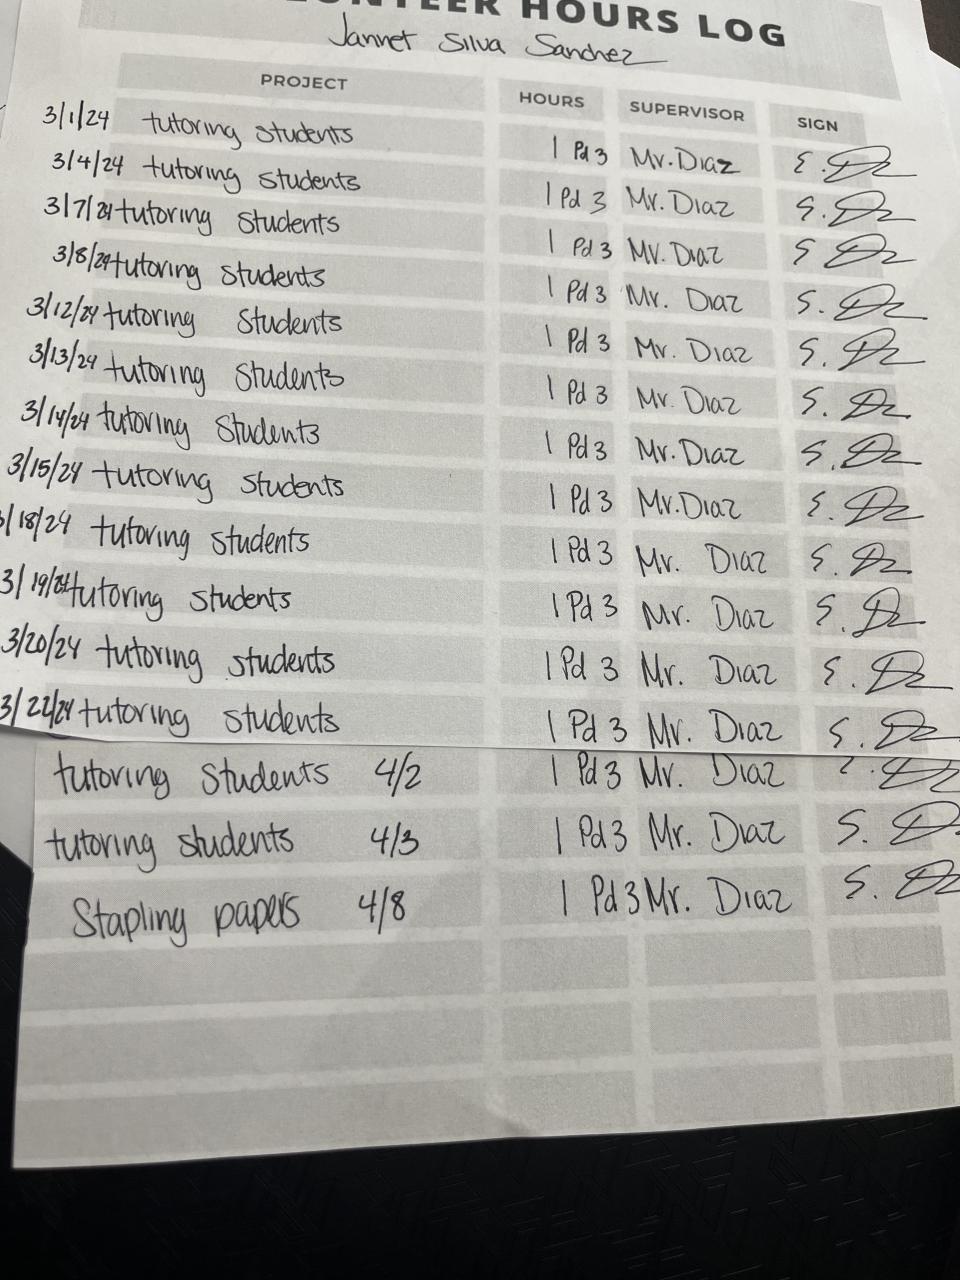 HOURS LOG
Jannet Silva Sanchez
PROJECT HOURS SUPERVISOR SIGN
3/1/24 tutoring students 1 Pd 3 Mr. Diaz
3/4/24 tutoring students 1 Pd 3 Mr. Diaz
3/7/24 tutoring students 1 Pd 3 Mr. Diaz
3/8/24 tutoring students 1 Pd 3 Mr. Diaz
3/12/24 tutoring students 1 Pd 3 Mr. Diaz
3/13/24 tutoring students 1 Pd 3 Mr. Diaz
3/14/24 tutoring students 1 Pd 3 Mr. Diaz
3/15/24 tutoring students 1 Pd 3 Mr. Diaz
3/18/24 tutoring students 1 Pd 3 Mr. Diaz
3/19/24 tutoring students 1 Pd 3 Mr. Diaz
3/20/24 tutoring students 1 Pd 3 Mr. Diaz
3/22/24 tutoring students 1 Pd 3 Mr. Diaz
tutoring students 4/2 1 Pd 3 Mr. Diaz
tutoring students 4/3 1 Pd 3 Mr. Diaz
Stapling papers 4/8 1 Pd 3 Mr. Diaz